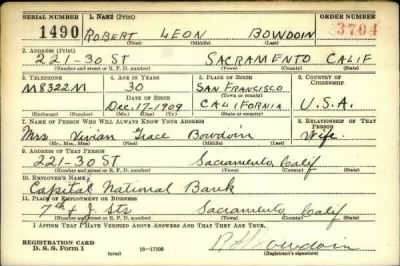 SERIAL NUMBER 1. NAME (Print) ORDER NUMBER
1490 ROBERT LEON BOWDOIN 3704
(First) (Middle) (Last)
2. ADDRESS (Print)
221-30 ST SACRAMENTO CALIF
(Number and street or R. F. D. number) (Town) (County) (State)
3. TELEPHONE 4. AGE IN YEARS 5. PLACE OF BIRTH 6. COUNTRY OF CITIZENSHIP
M8322M 30 SAN FRANCISCO
DATE OF BIRTH (Town or county)
Dec. 17-1909 CALIFORNIA U.S.A.
(Exchange) (Number) (Mo.) (Day) (Yr.) (State or country)
7. NAME OF PERSON WHO WILL ALWAYS KNOW YOUR ADDRESS 8. RELATIONSHIP OF THAT PERSON
Mrs Vivian Grace Bowdoin Wife.
(Mr., Mrs., Miss) (First) (Middle) (Last)
9. ADDRESS OF THAT PERSON
221-30 ST Sacramento, Calif
(Number and street or R. F. D. number) (Town) (County) (State)
10. EMPLOYER'S NAME
Capital National Bank
11. PLACE OF EMPLOYMENT OR BUSINESS
7th & J Sts Sacramento, Calif
(Number and street or R. F. D. number) (Town) (County) (State)
I AFFIRM THAT I HAVE VERIFIED ABOVE ANSWERS AND THAT THEY ARE TRUE.
REGISTRATION CARD
D. S. S. Form 1 (over) 16-17105 (Registrant's signature)